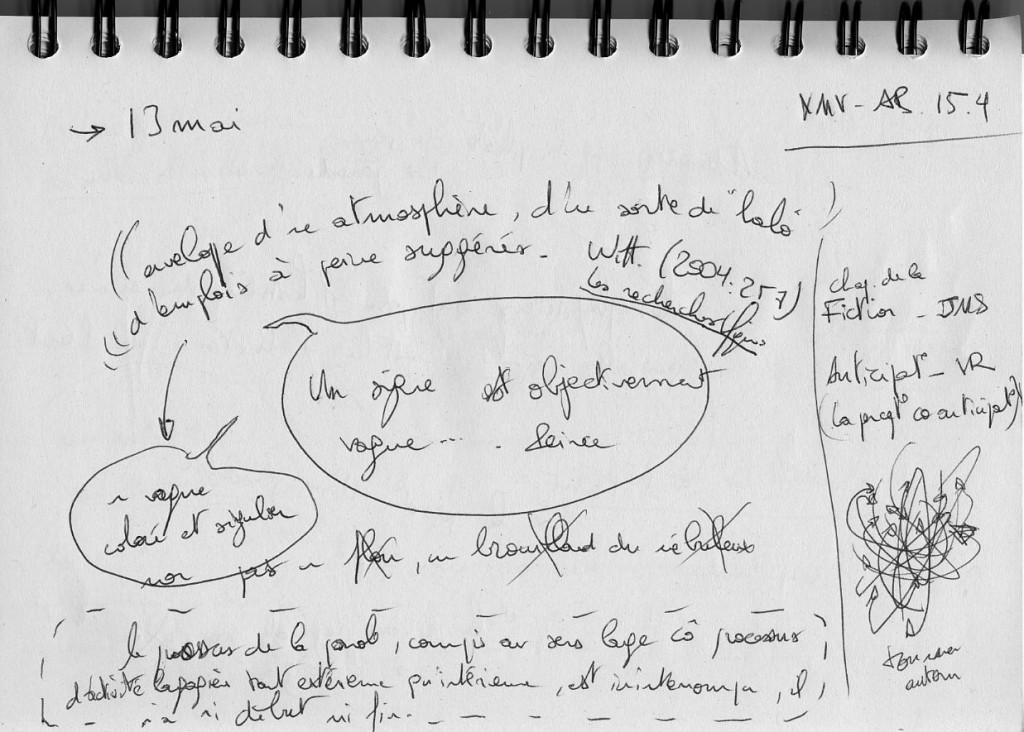 → 13 mai
XMV - AB. 15.4
((envelope d'1e atmosphère, d'1e sorte de "halo"
d'emplois à peine suggérés. Witt. (2004:257)
Les recherches
Un signe est objectivement
vague .... Peirce
1 vague
coloré et singulier
non pas 1 flou, un brouillard du nébuleux
Chap. de la
Fiction - JMS
Anticipat° - VR
(la co anticipat°)
tourner
autour
le processus de la parole, compris au sens large cô processus
d'activité tant extérieure qu'intérieure, est ininterrompu, il
n'a ni début ni fin.